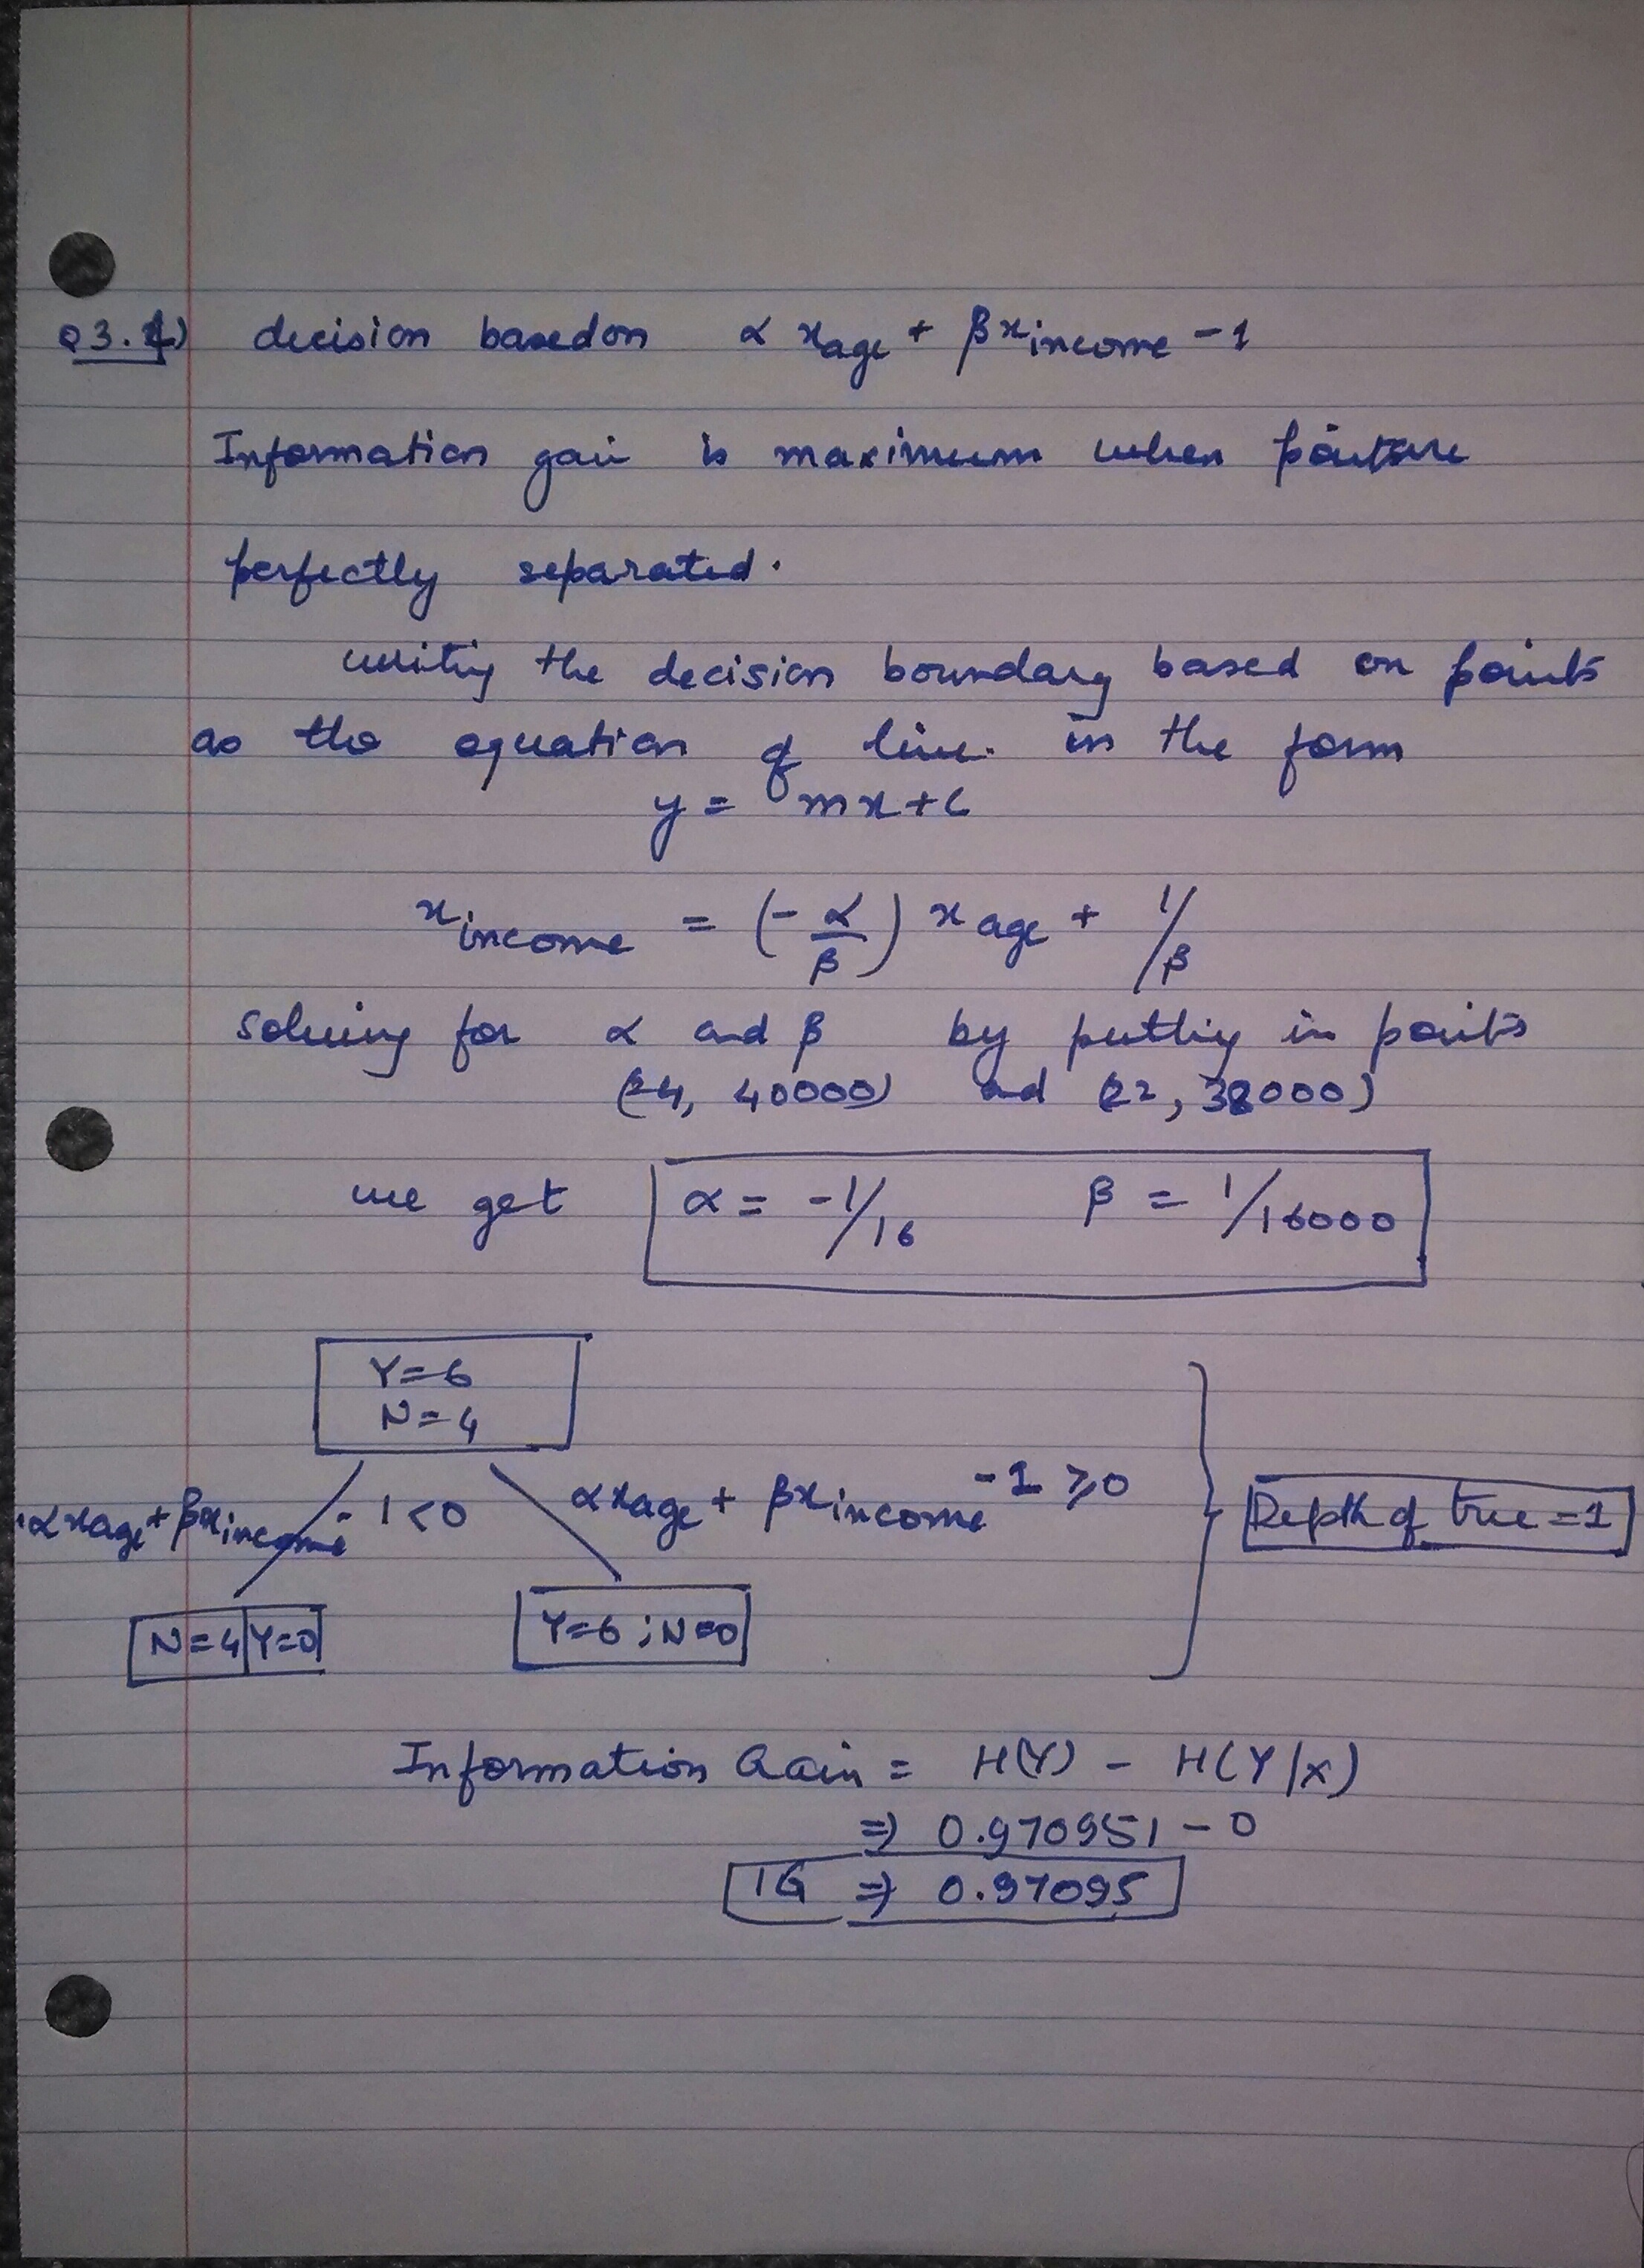 Q3.4) decision based on α xage + β xincome - 1
Information gain is maximum when points are
perfectly separated.
writing the decision boundary based on points
as the equation of line. in the form
y = mx + c
xincome = (-α/β) xage + 1/β
solving for α and β by putting in points
(24, 40000) and (22, 38000)
we get α = -1/16 β = 1/16000
Y=6
N=4
αxage + βxincome - 1 < 0 αxage + βxincome - 1 ≥ 0 Depth of tree = 1
N=4 Y=0 Y=6 ; N=0
Information Gain = H(Y) - H(Y/X)
⇒ 0.970951 - 0
IG ⇒ 0.97095